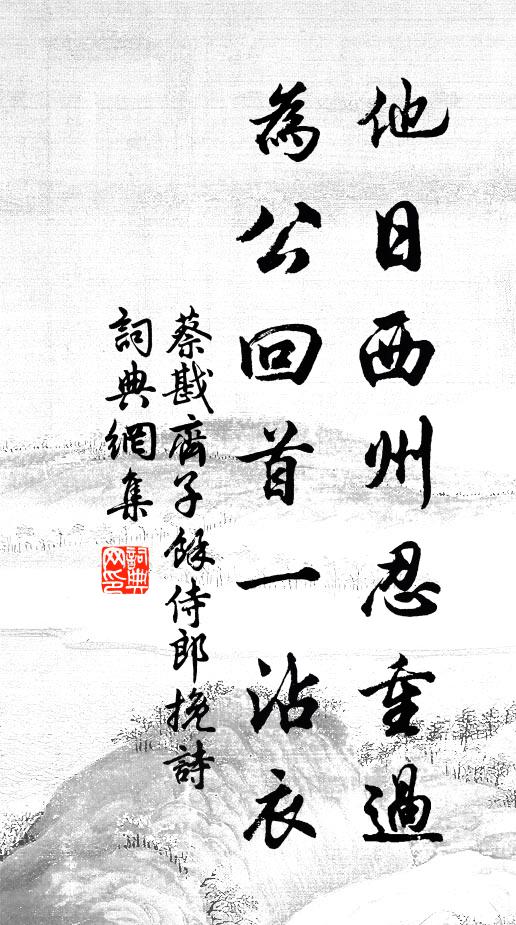 他日西州忍重過
為公回首一沾衣
蔡戡齊子餘侍郎挽詩
詞典網集
詞典网印